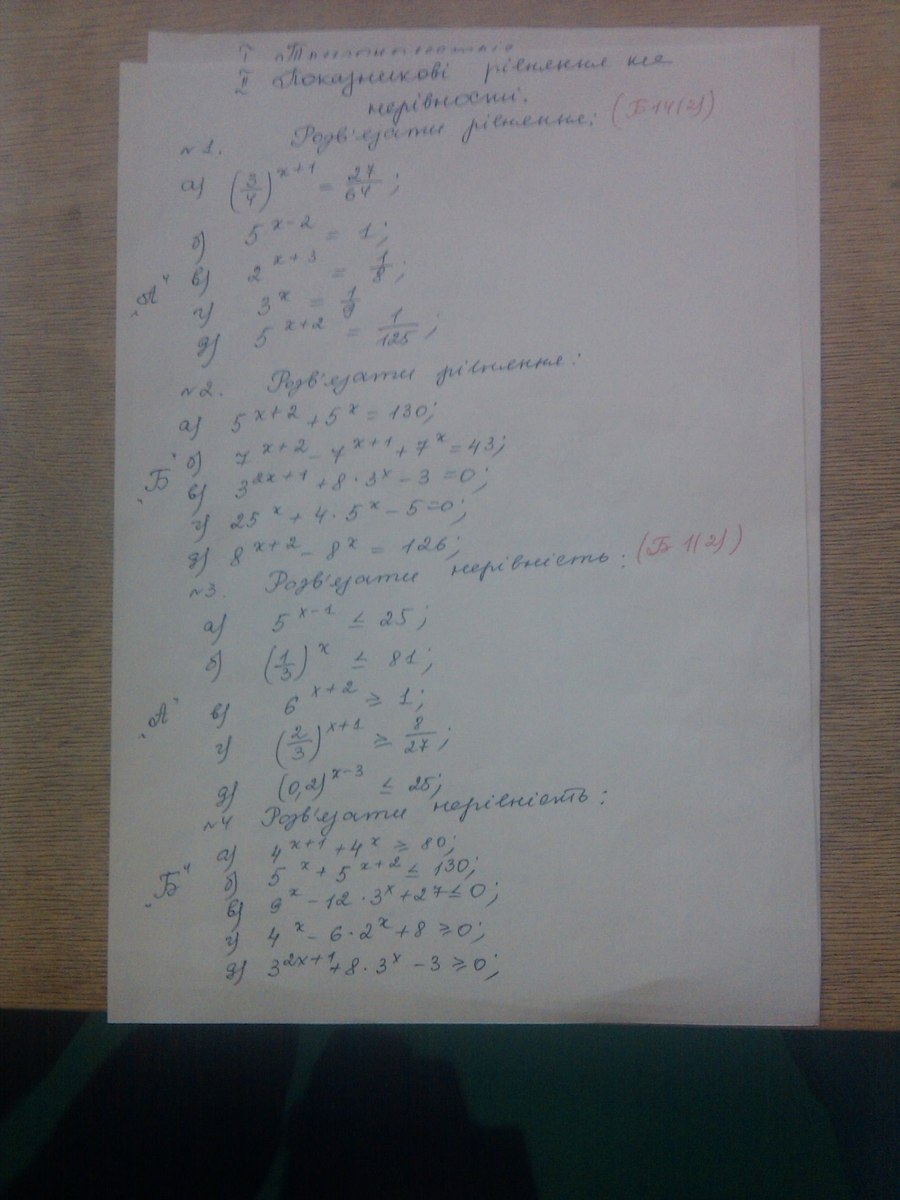 I
II Показникові рівняння та
нерівності.
№1. Розв'язати рівняння: (Б14(2)
а) (3/4)^(x+1) = 27/64;
б) 5^(x-2) = 1;
"А" в) 2^(x+3) = 1/8;
г) 3^x = 1/9
д) 5^(x+2) = 1/125;
№2. Розв'язати рівняння:
а) 5^(x+2) + 5^x = 130;
б) 7^(x+2) - 7^(x+1) + 7^x = 43;
"Б" в) 3^(2x+1) + 8·3^x - 3 = 0;
г) 25^x + 4·5^x - 5 = 0;
д) 8^(x+2) - 8^x = 126;
№3. Розв'язати нерівність: (Б 1(2)
а) 5^(x-1) ≤ 25;
б) (1/3)^x ≤ 81;
"А" в) 6^(x+2) ≥ 1;
г) (2/3)^(x+1) ≥ 8/27;
д) (0,2)^(x-3) ≤ 25;
№4 Розв'язати нерівність:
а) 4^(x+1) + 4^x ≥ 80;
"Б" б) 5^x + 5^(x+2) ≤ 130;
в) 9^x - 12·3^x + 27 ≤ 0;
г) 4^x - 6·2^x + 8 ≥ 0;
д) 3^(2x+1) + 8·3^x - 3 ≥ 0;